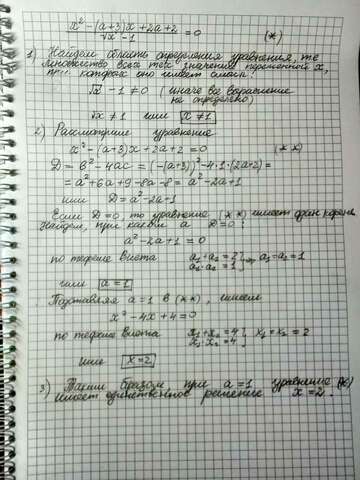 x² - (a+3)x + 2a+2
√x - 1 = 0 (*)
1) Найдем область определения уравнения, т.е.
множество всех тех значений переменной x,
при которых оно имеет смысл:
√x - 1 ≠ 0 (иначе все выражение
не определено)
√x ≠ 1 или x ≠ 1
2) Рассмотрим уравнение
x² - (a+3)x + 2a+2 = 0 (**)
D = b² - 4ac = (-(a+3))² - 4·1·(2a+2) =
= a² + 6a + 9 - 8a - 8 = a² - 2a + 1
или D = a² - 2a + 1
Если D = 0, то уравнение (**) имеет один корень.
Найдем, при каком a D = 0:
a² - 2a + 1 = 0
по теореме Виета a₁ + a₂ = 2
a₁·a₂ = 1 ⇒ a₁ = a₂ = 1
или a = 1
Подставляя a = 1 в (**), имеем
x² - 4x + 4 = 0
по теореме Виета x₁ + x₂ = 4
x₁·x₂ = 4, x₁ = x₂ = 2
или x = 2
3) Таким образом при a = 1 уравнение (*)
имеет единственное решение x = 2.